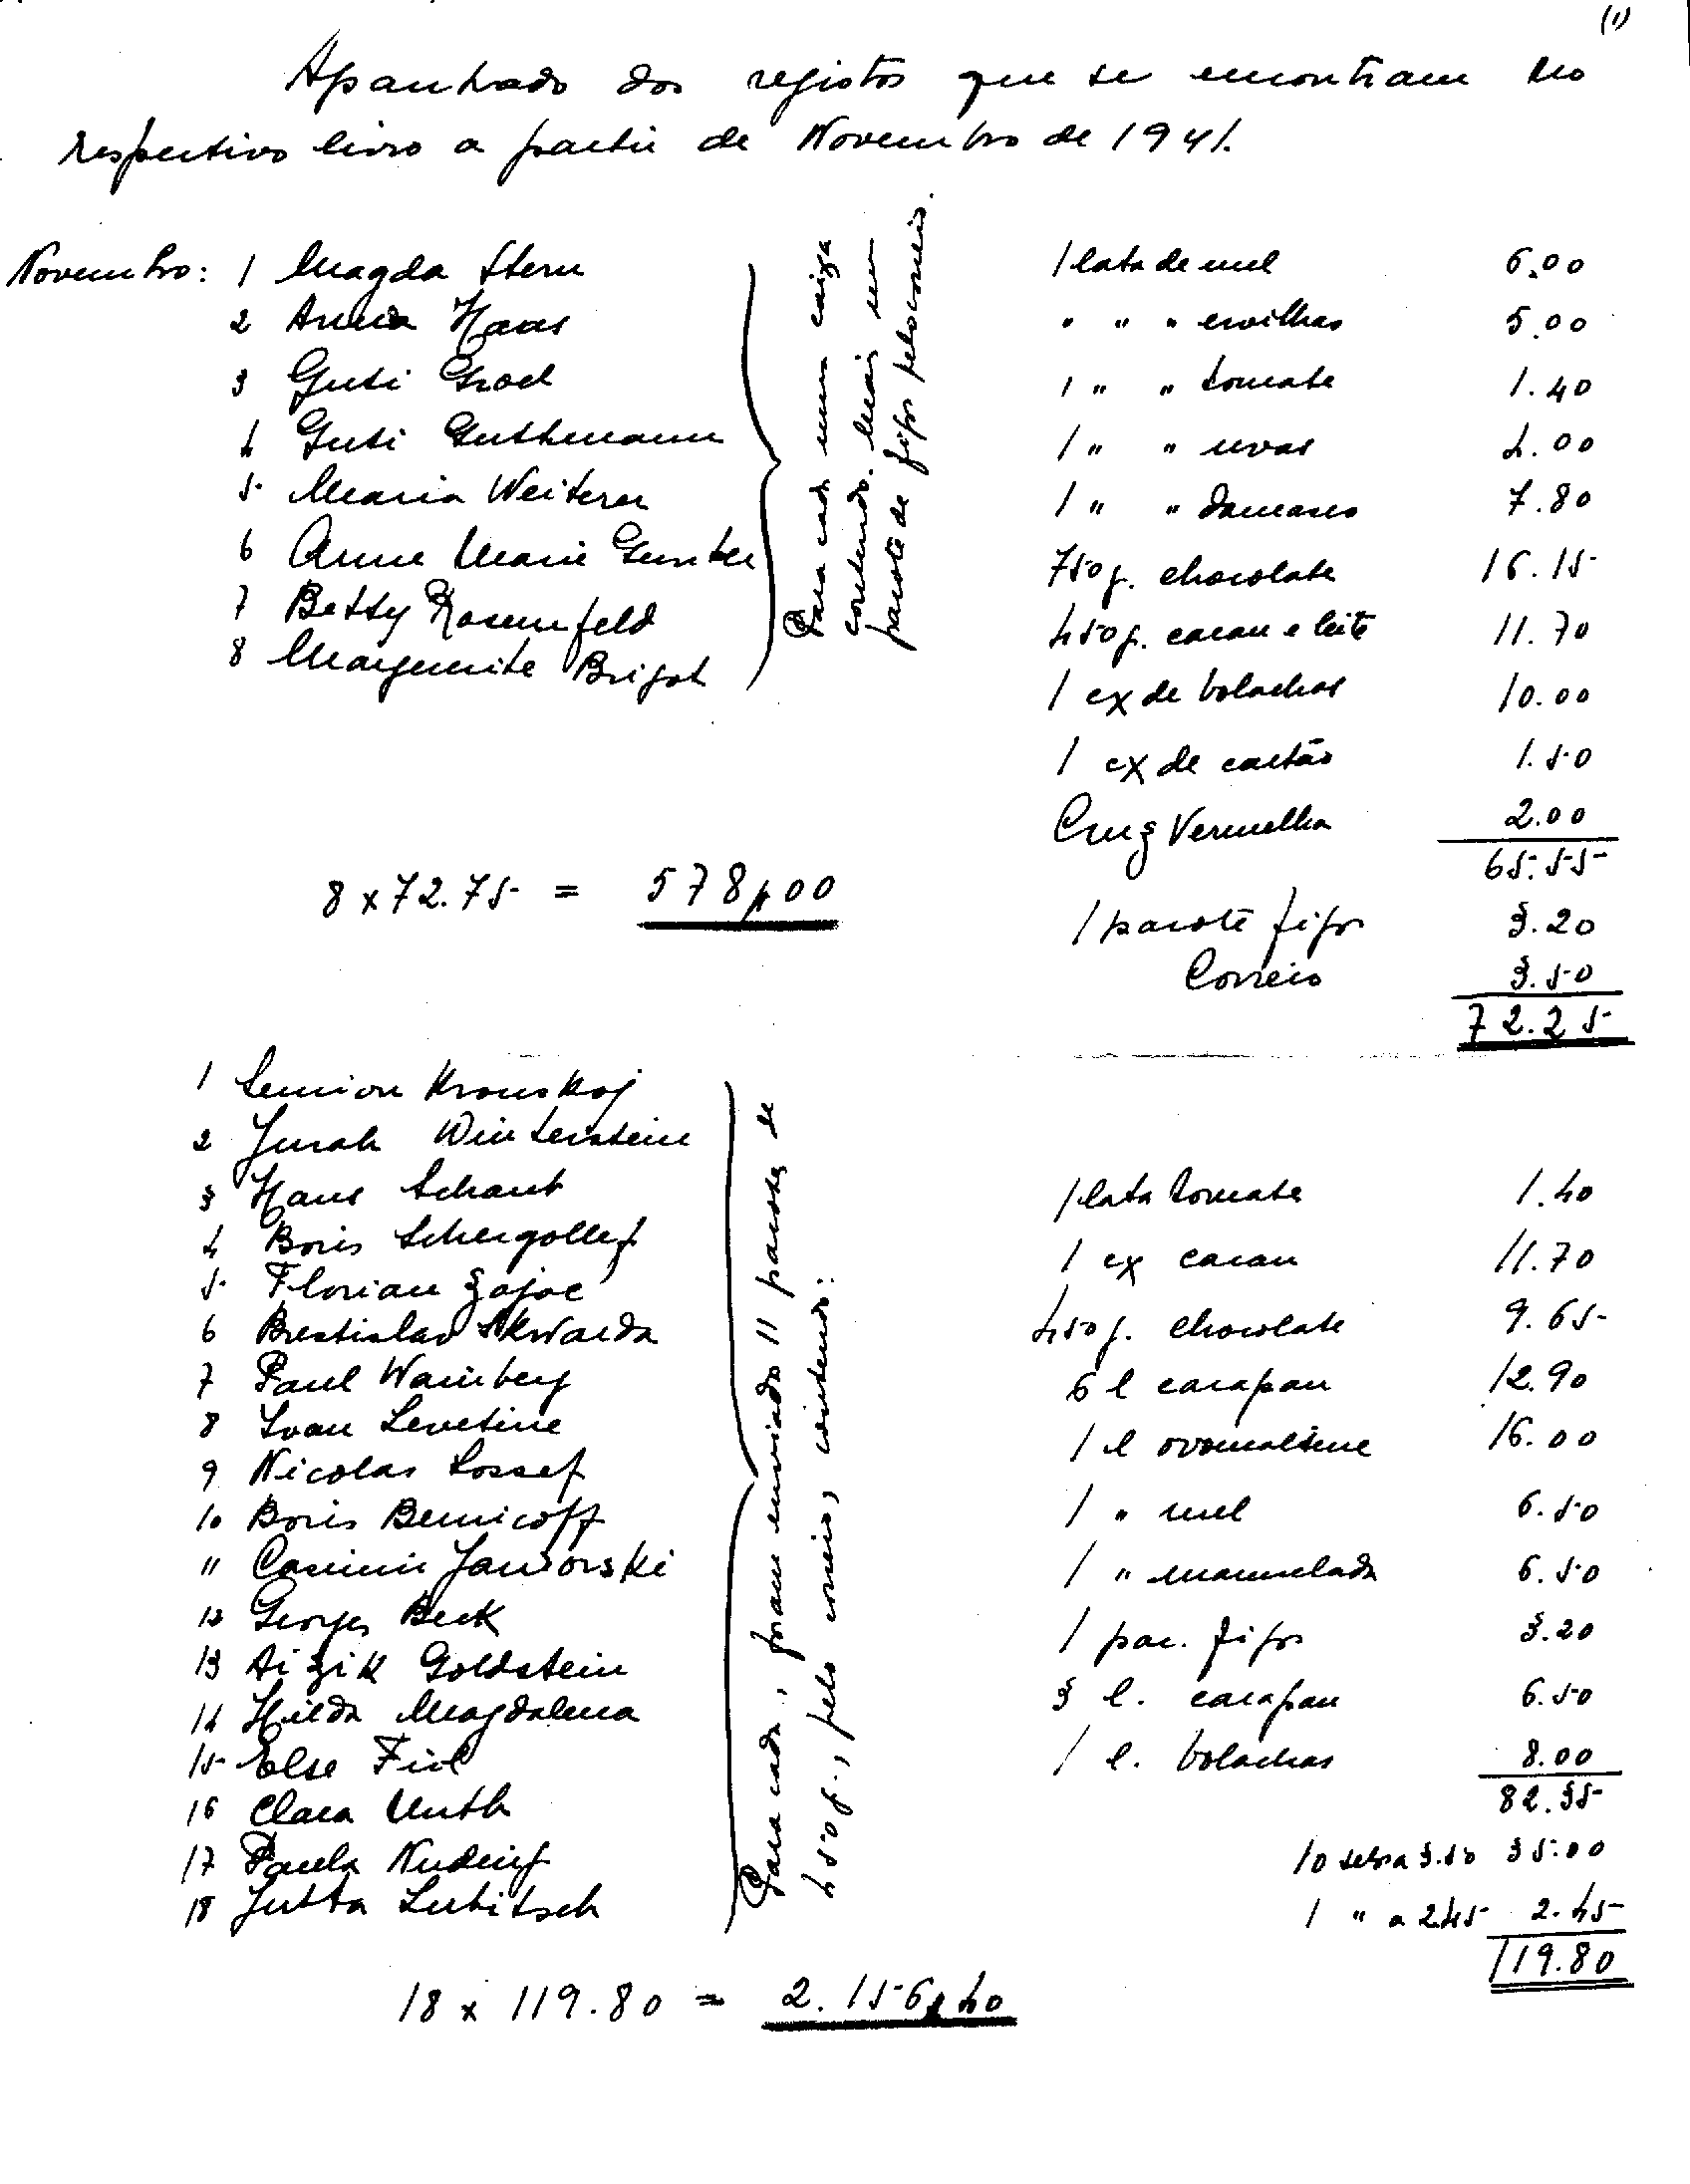 (1)
Apanhado dos registos que se encontram no
respectivo livro a partir de Novembro de 1941.
Novembro: 1 Magda Stern
2 Anna Haas
3 Guti
4 Guti Guthmann
5 Maria Weiterer
6 Anne Marie Gunter
7 Betty Rosenfeld
8 Marguerite Brigot
Para cada uma caixa
contendo. Mais um
pacote de figos pelo correio.
1 lata de mel 6.00
" " " ervilhas 5.00
1 " " tomate 1.40
1 " " uvas 4.00
1 " " damasco 7.80
750 g. chocolate 16.15
450 g. cacau e leite 11.70
1 cx de bolachas 10.00
1 cx de cartão 1.50
Cruz Vermelha 2.00
65.55
1 pacote figos 3.20
Correio 3.50
72.25
8 x 72.75 = 578,00
1 Semion Kronskoj
2 Jurak Winterstein
3 Hans Schaub
4 Boris
5 Florian Zajac
6 Brestislav Skwarda
7 Paul Wainberg
8 Ivan Levetine
9 Nicolas Lossef
10 Boris Bemicoff
11 Casimir Jaworski
12 Georges Beck
13 Aizik Goldstein
14 Hilda Magdalena
15 Else
16 Clara Muth
17 Paula Nuding
18 Jutta Lubitsch
Para cada, foram enviados 11 pacotes de
450 g., pelo correio, contendo:
1 lata tomate 1.40
1 cx cacau 11.70
450 g. chocolate 9.65
6 l carapau 12.90
1 l ovomaltine 16.00
1 " mel 6.50
1 " marmelada 6.50
1 pac. figos 3.20
3 l. carapau 6.50
1 l. bolachas 8.00
82.35
10 selos a 3.50 35.00
1 " a 2.45 2.45
119.80
18 x 119.80 = 2.156,40